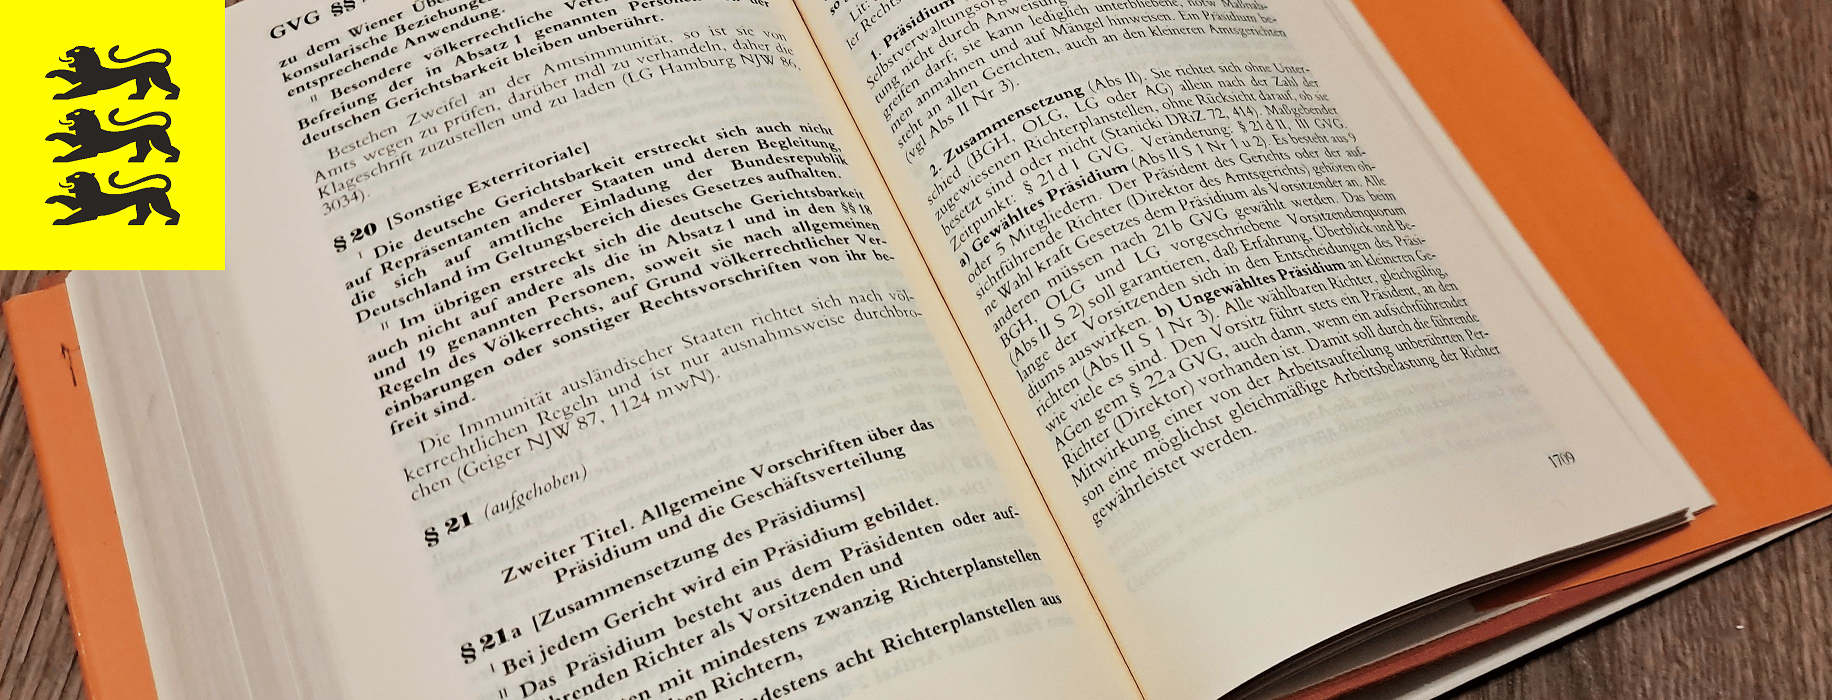 GVG §§
zu dem Wiener
konsularische Beziehungen
entsprechende Anwendung.
II Besondere völkerrechtliche
Befreiung der in Absatz 1 genannten Personen von der
deutschen Gerichtsbarkeit bleiben unberührt.
Bestehen Zweifel an der Amtsimmunität, so ist sie von
Amts wegen zu prüfen, darüber mdl zu verhandeln, daher die
Klageschrift zuzustellen und zu laden (LG Hamburg NJW 86,
3034).
§ 20 [Sonstige Exterritoriale]
I Die deutsche Gerichtsbarkeit erstreckt sich auch nicht
auf Repräsentanten anderer Staaten und deren Begleitung,
die sich auf amtliche Einladung der Bundesrepublik
Deutschland im Geltungsbereich dieses Gesetzes aufhalten.
II Im übrigen erstreckt sich die deutsche Gerichtsbarkeit
auch nicht auf andere als die in Absatz 1 und in den §§ 18
und 19 genannten Personen, soweit sie nach allgemeinen
Regeln des Völkerrechts, auf Grund völkerrechtlicher Ver-
einbarungen oder sonstiger Rechtsvorschriften von ihr be-
freit sind.
Die Immunität ausländischer Staaten richtet sich nach völ-
kerrechtlichen Regeln und ist nur ausnahmsweise durchbro-
chen (Geiger NJW 87, 1124 mwN).
§ 21 (aufgehoben)
Zweiter Titel. Allgemeine Vorschriften über das
Präsidium und die Geschäftsverteilung
§ 21a [Zusammensetzung des Präsidiums]
I Bei jedem Gericht wird ein Präsidium gebildet.
II Das Präsidium besteht aus dem Präsidenten oder auf-
führenden Richter als Vorsitzenden und
mit mindestens zwanzig Richterplanstellen
Richtern,
mindestens acht Richterplanstellen aus
der Rechts
1. Präsidium
Selbstverwaltungsorg
tung nicht durch Anweisung
greifen darf; sie kann lediglich unterbliebene, notw Maßnah-
men anmahnen und auf Mängel hinweisen. Ein Präsidium be-
steht an allen Gerichten, auch an den kleineren Amtsgerichten
(vgl Abs II Nr 3).
2. Zusammensetzung (Abs II). Sie richtet sich ohne Unter-
schied (BGH, OLG, LG oder AG) allein nach der Zahl der
zugewiesenen Richterplanstellen, ohne Rücksicht darauf, ob sie
besetzt sind oder nicht (Stanicki DRiZ 72, 414). Maßgebender
Zeitpunkt: § 21 d I GVG. Veränderung: § 21 d II, III GVG.
a) Gewähltes Präsidium (Abs II S 1 Nr 1 u 2). Es besteht aus 9
oder 5 Mitgliedern. Der Präsident des Gerichts oder der auf-
sichtführende Richter (Direktor des Amtsgerichts) gehören oh-
ne Wahl kraft Gesetzes dem Präsidium als Vorsitzender an. Alle
anderen müssen nach 21 b GVG gewählt werden. Das beim
BGH, OLG und LG vorgeschriebene Vorsitzendenquorum
(Abs II S 2) soll garantieren, daß Erfahrung, Überblick und Be-
lange der Vorsitzenden sich in den Entscheidungen des Präsi-
diums auswirken. b) Ungewähltes Präsidium an kleineren Ge-
richten (Abs II S 1 Nr 3). Alle wählbaren Richter, gleichgültig,
wie viele es sind. Den Vorsitz führt stets ein Präsident, an den
AGen gem § 22 a GVG, auch dann, wenn ein aufsichtführender
Richter (Direktor) vorhanden ist. Damit soll durch die führende
Mitwirkung einer von der Arbeitsaufteilung unberührten Per-
son eine möglichst gleichmäßige Arbeitsbelastung der Richter
gewährleistet werden.
1709